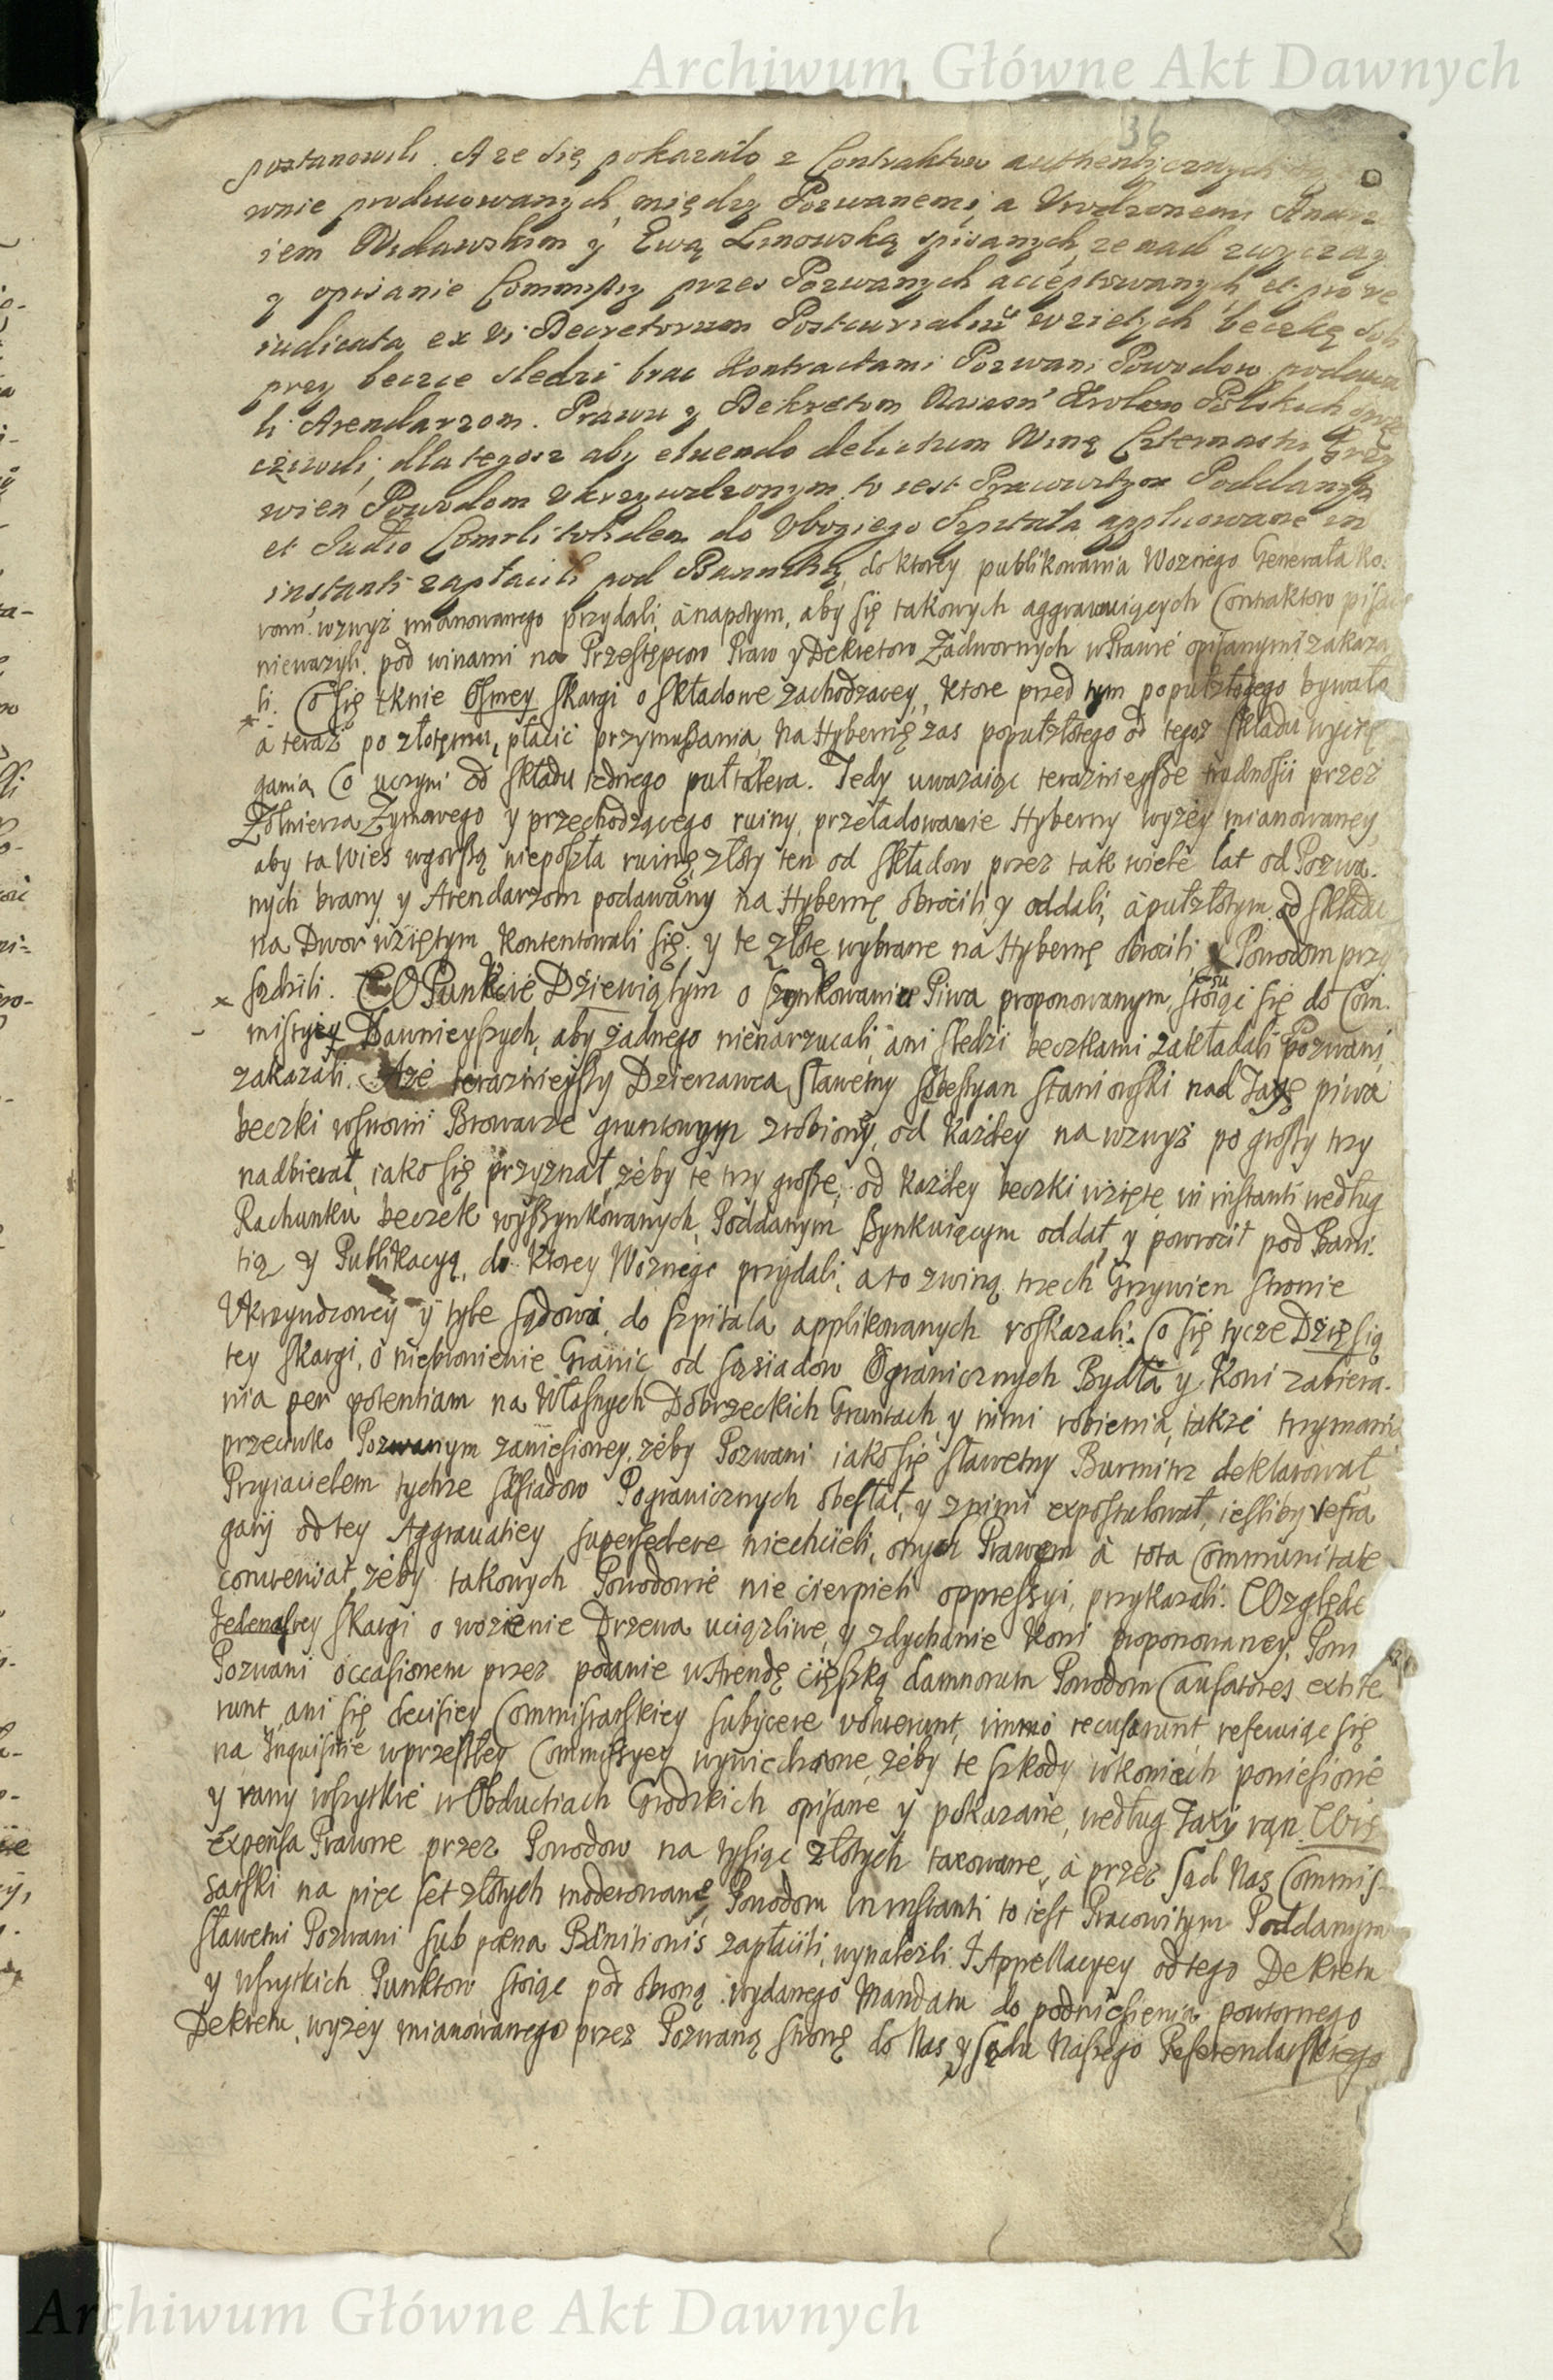 Archiwum Główne Akt Dawnych
36
postanowili. A ze się pokazało z Contraktow authentycznych
wnie produkowanych, między Pozwanemi, a Vrodzonemi
iem Widawskim y Ewą Linowską spisanych, ze nad zwyczay
y opisanie Commissyy przez Pozwanych acceptowanych et pro re
iudicata ex vi Decretorum Postcurialiũ wziętych beczkę
przy beczce sledzi brac Kontractami Pozwani Powodow podawa
li Arendarzom. Prawu y Dekretom Naiasń Krolow Polskich
ciwili, dla tegosz aby eluendo delictum Winę Czternastu Grzy
wień Powodom Vkrzywdzonym to iest Pracowitym Poddanym
et Judio Comrli totidem do Vbogiego Szpitala applicowane in
instanti zapłacili pod Bannicią, do ktorey publikowania Woznego Generała Ko:
ronñ. wzwyż mianowanego przydali, à napotym, aby się takowych aggrawuiących Contraktow pisac
niewazyli. pod winami na Przestępcow Praw y Dekretow Zadwornych w Prawie opisanymi zakaza
li. Co się tknie Osmey skargi o składowe zachodzącey, ktore przed tym popułzłotego bywało
à teraz po złotemu, płacić przymuszania, na Hybernę zas popułzłotego od tegoż składu wycię
gania Co uczyni od składu iednego pułtalera. Tedy uwazaiąc teraznieysze trudnosci przez
Zołnierza Zymowego y przechodzącego ruiny, przeładowanie Hyberny wyżey mianowaney,
aby ta Wies w gorszą nieposzła ruinę, złoty ten od składow, przez tak wiele lat od Pozwa.
nych brany y Arendarzom podawany na Hybernę obrocili, y oddali, à pułzłotym od składu
na Dwor wziętym kontentowali się. y te złote wybrane na Hybernę obrocili, y Powodom przy
sądzili. W Punkcie Dziewiątym o szynkowaniu Piwa proponowanym, stoiąc się do Com.
missyiey Dawnieyszych, aby żadnego nienarzucali, ani sledzi beczkami zakładali Pozwani,
zakazali. Aże teraznieyszy Dzierzawca Sławetny Sebestyan Staniowski nad Taxę piwa
beczki w słowni Browarze gruntownym zrobiony, od każdey na wzwyż po groszy trzy
nadbierał, iako się przyznał, żeby te trzy grosze, od każdey beczki wzięte in instanti według
Rachunku beczek wyszynkowanych, Poddanym szynkuiącym oddał, y powrocił pod Bani.
tią y Publikacyą, do ktorey Woznego przydali, a to zwiną trzech Grzywien stronie
Vkrzywdzoney y tyle sądowi do szpitala applikowanych roskazali. Co się tycze Dziesią
tey skargi, o niebronienie Granic od sąsiadow Ogranicznych Bydła y Koni zabiera.
nia per potentiam na Własnych Dobrzeckich Gruntach y nimi robienia, także trzymania
przeciwko Pozwanym zaniesioney. żeby Pozwani iako się Sławetny Burmitrz deklarował
Przyiacielem tychze sąsiadow Pogranicznych obesłał, y z nimi expostulował, iesliby refra
gatij od tey Aggrauatiey supersedere niechcieli, onych Prawem à tota Communitate
conueniał, żeby takowych Powodowie nie cierpieli oppressyi, przykazali. Względe
Jedenastey skargi o wożenie Drzewa uciązliwe, y zdychanie Koni proponowaney. Pon
Pozwani occasionem przez podanie w Arendę ciężką damnorum Powodom Causatores extite
runt, ani się decisiey Commissarskiey subijcere voluerunt, immo recusarunt, referuiąc się
na Inquisitie w przeszłey Commissyey wywiedzione, żeby te szkody w koniech poniesione
y rany wszystkie w Obductiach Grodzkich opisane y pokazane, według Taxy rąn.
Expensa Prawne przez Powodow na tysiąc złotych taxowane, à przez sąd Nas Commis-
sarski na pięc set złotych moderowane, Powodom in instanti to iest Pracowitym Poddanym
Sławetni Pozwani sub pæna Banitionis zapłacili, wynalezli. J Appellacyey od tego Dekretu
y wszystkich Punktow stoiąc pod obroną wydanego Mandatu do podniesienia powtornego
Dekretu, wyzey mianowanego przez Pozwaną stronę do Nas y sądu Naszego Referendarskiego
Archiwum Główne Akt Dawnych